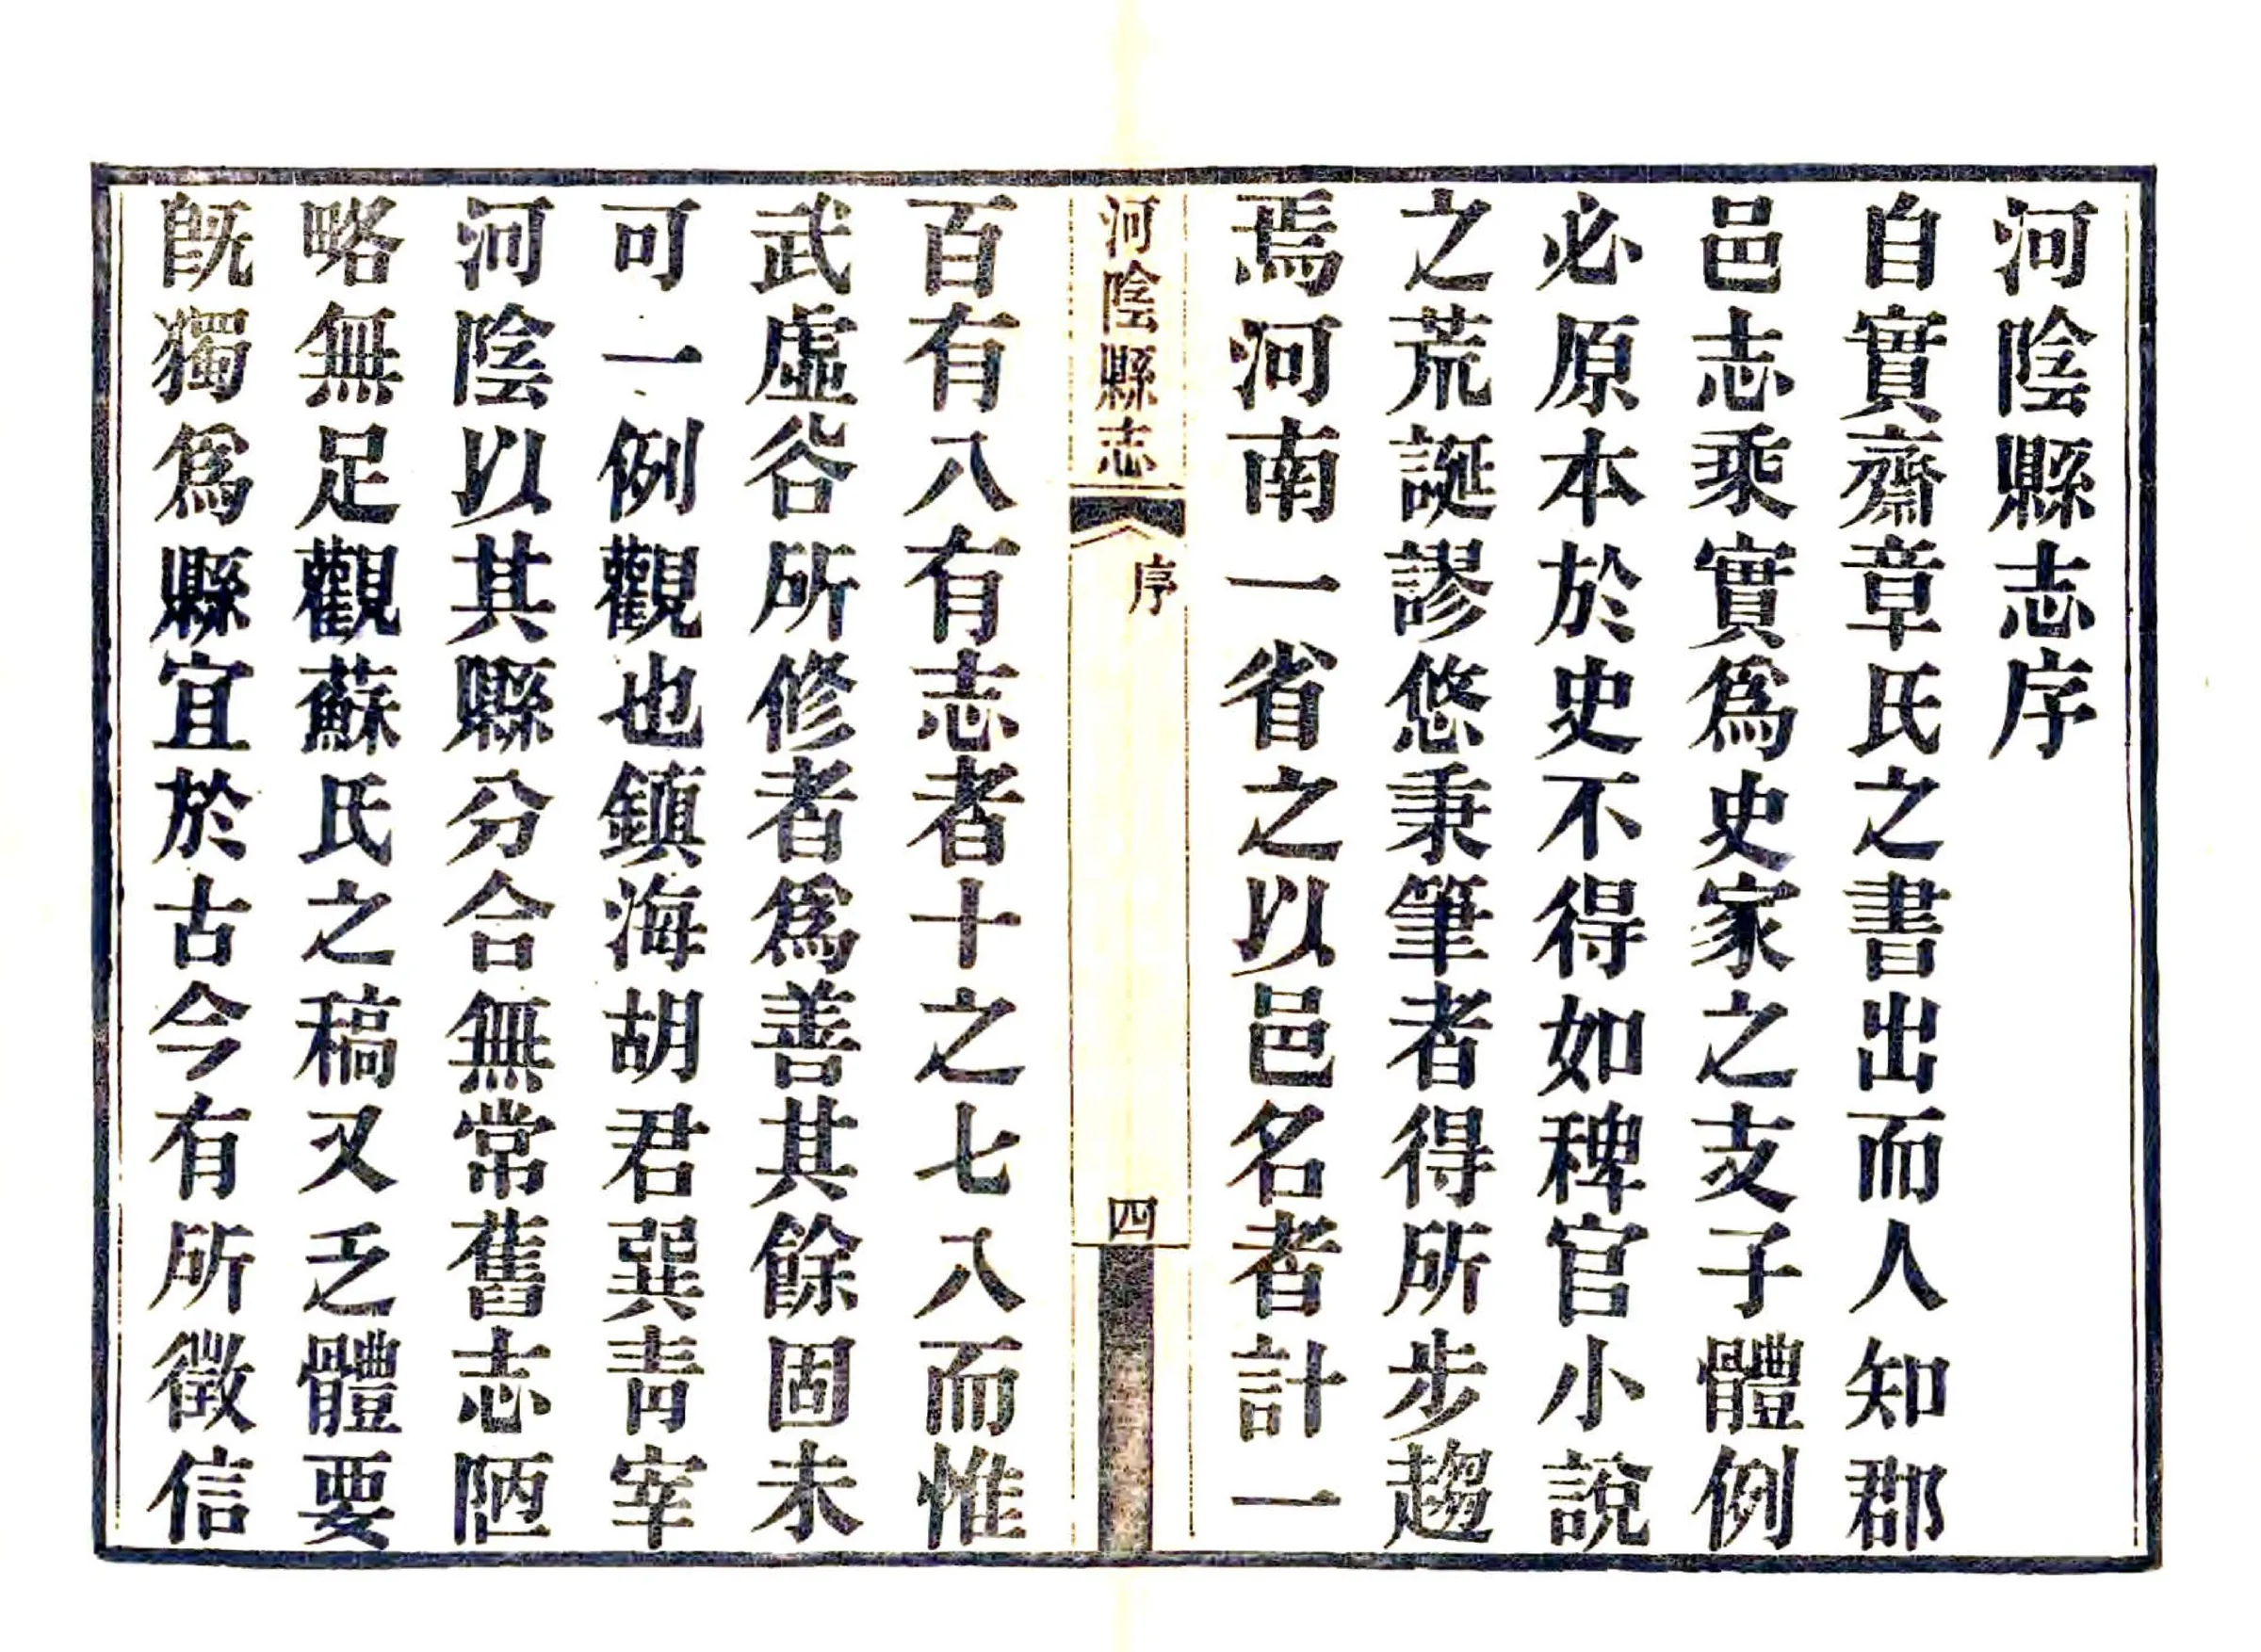 河陰縣志序
自實齋章氏之書出而人知郡
邑志乘實爲史家之支子體例
必原本於史不得如稗官小說
之荒誕謬悠秉筆者得所步趨
焉河南一省之以邑名者計一
河陰縣志
序
四
百有八有志者十之七八而惟
武虛谷所修者爲善其餘固未
可一例觀也鎮海胡君巽青宰
河陰以其縣分合無常舊志陋
略無足觀蘇氏之稿又乏體要
旣獨爲縣宜於古今有所徵信